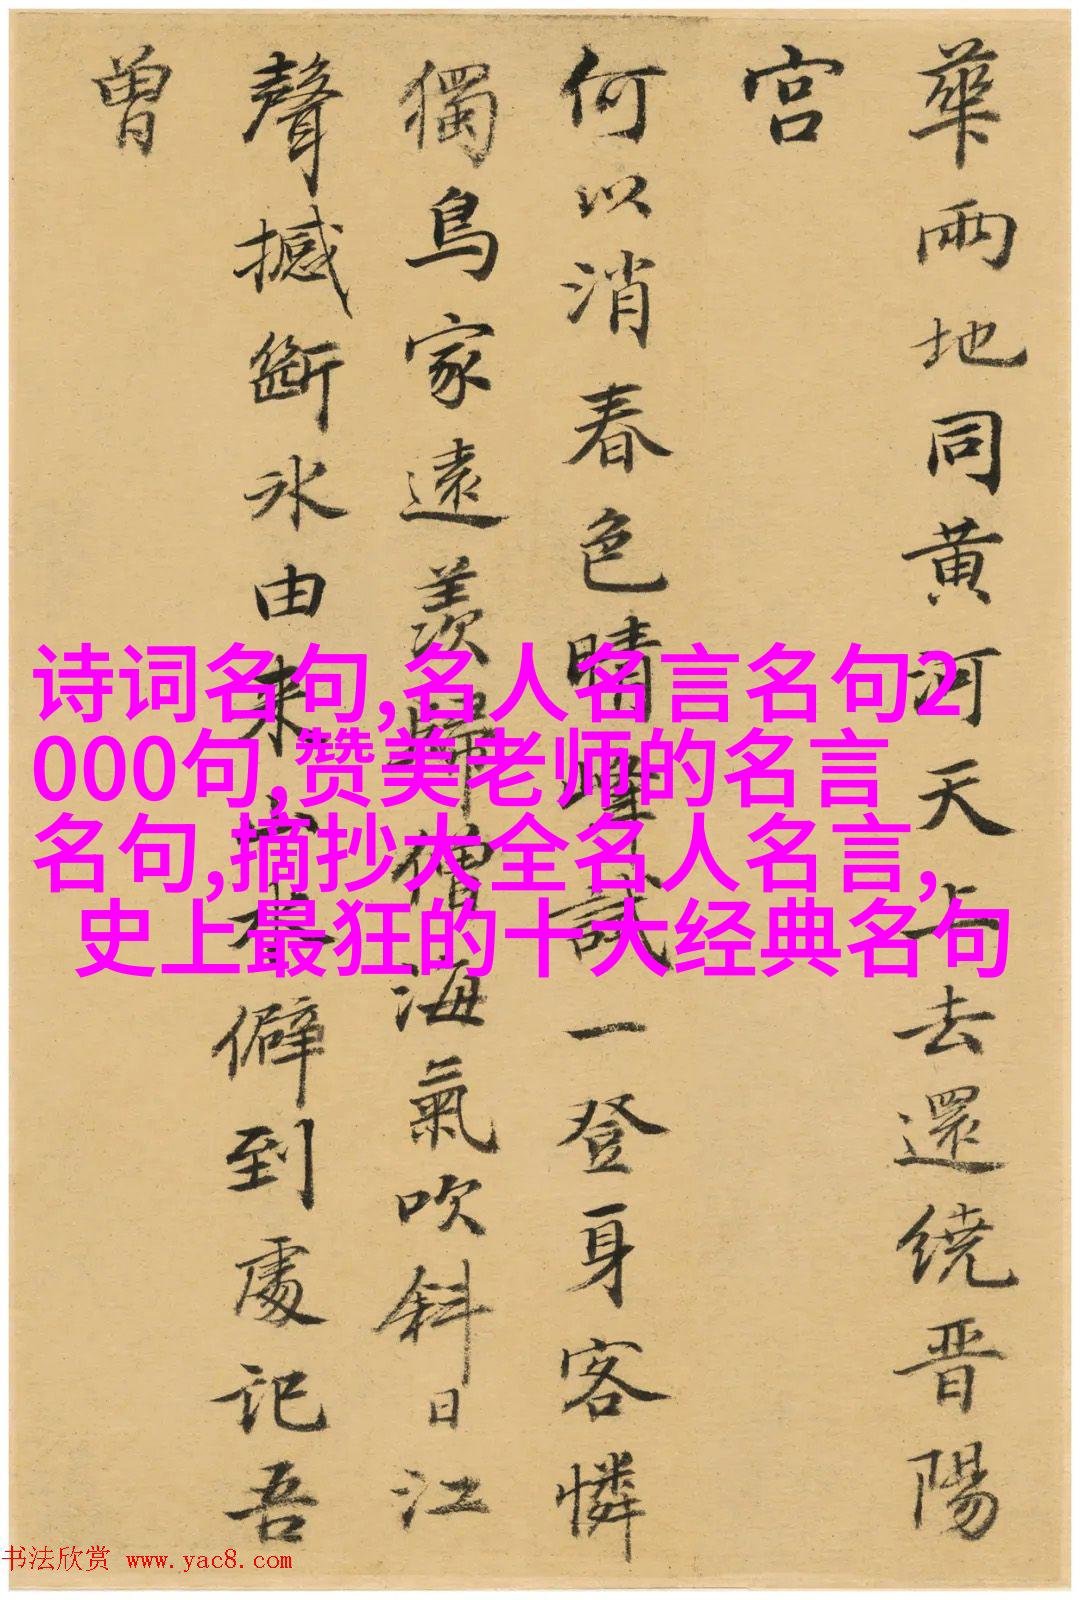 華兩地同黄河天上去還繞晋陽
宫
何以消春色晴峰試一登身客憐
獨鳥家遠羨歸僧海氣吹斜日江
聲撼斷冰由来山水僻到處記吾
曾
诗词名句,名人名言名句2
000句,赞美老师的名言
名句,摘抄大全名人名言,
史上最狂的十大经典名句
书法欣赏 www.yac8.com